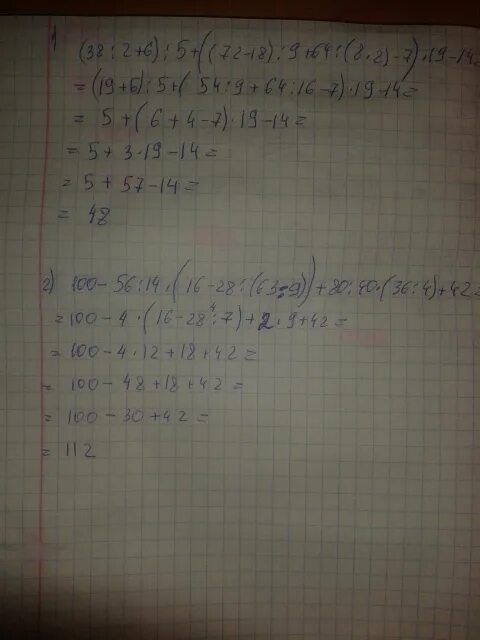 1 (38:2+6):5+((72-18):9+64:(8·2)-7)·19-14=
=(19+6):5+(54:9+64:16-7)·19-14=
= 5+(6+4-7)·19-14=
= 5+3·19-14=
= 5+57-14=
= 48
2) 100-56:14·(16-28:(63:9))+80:40·(36:4)+42=
=100-4·(16-28:7)+2·9+42=
=100-4·12+18+42=
= 100-48+18+42=
= 100-30+42=
= 112